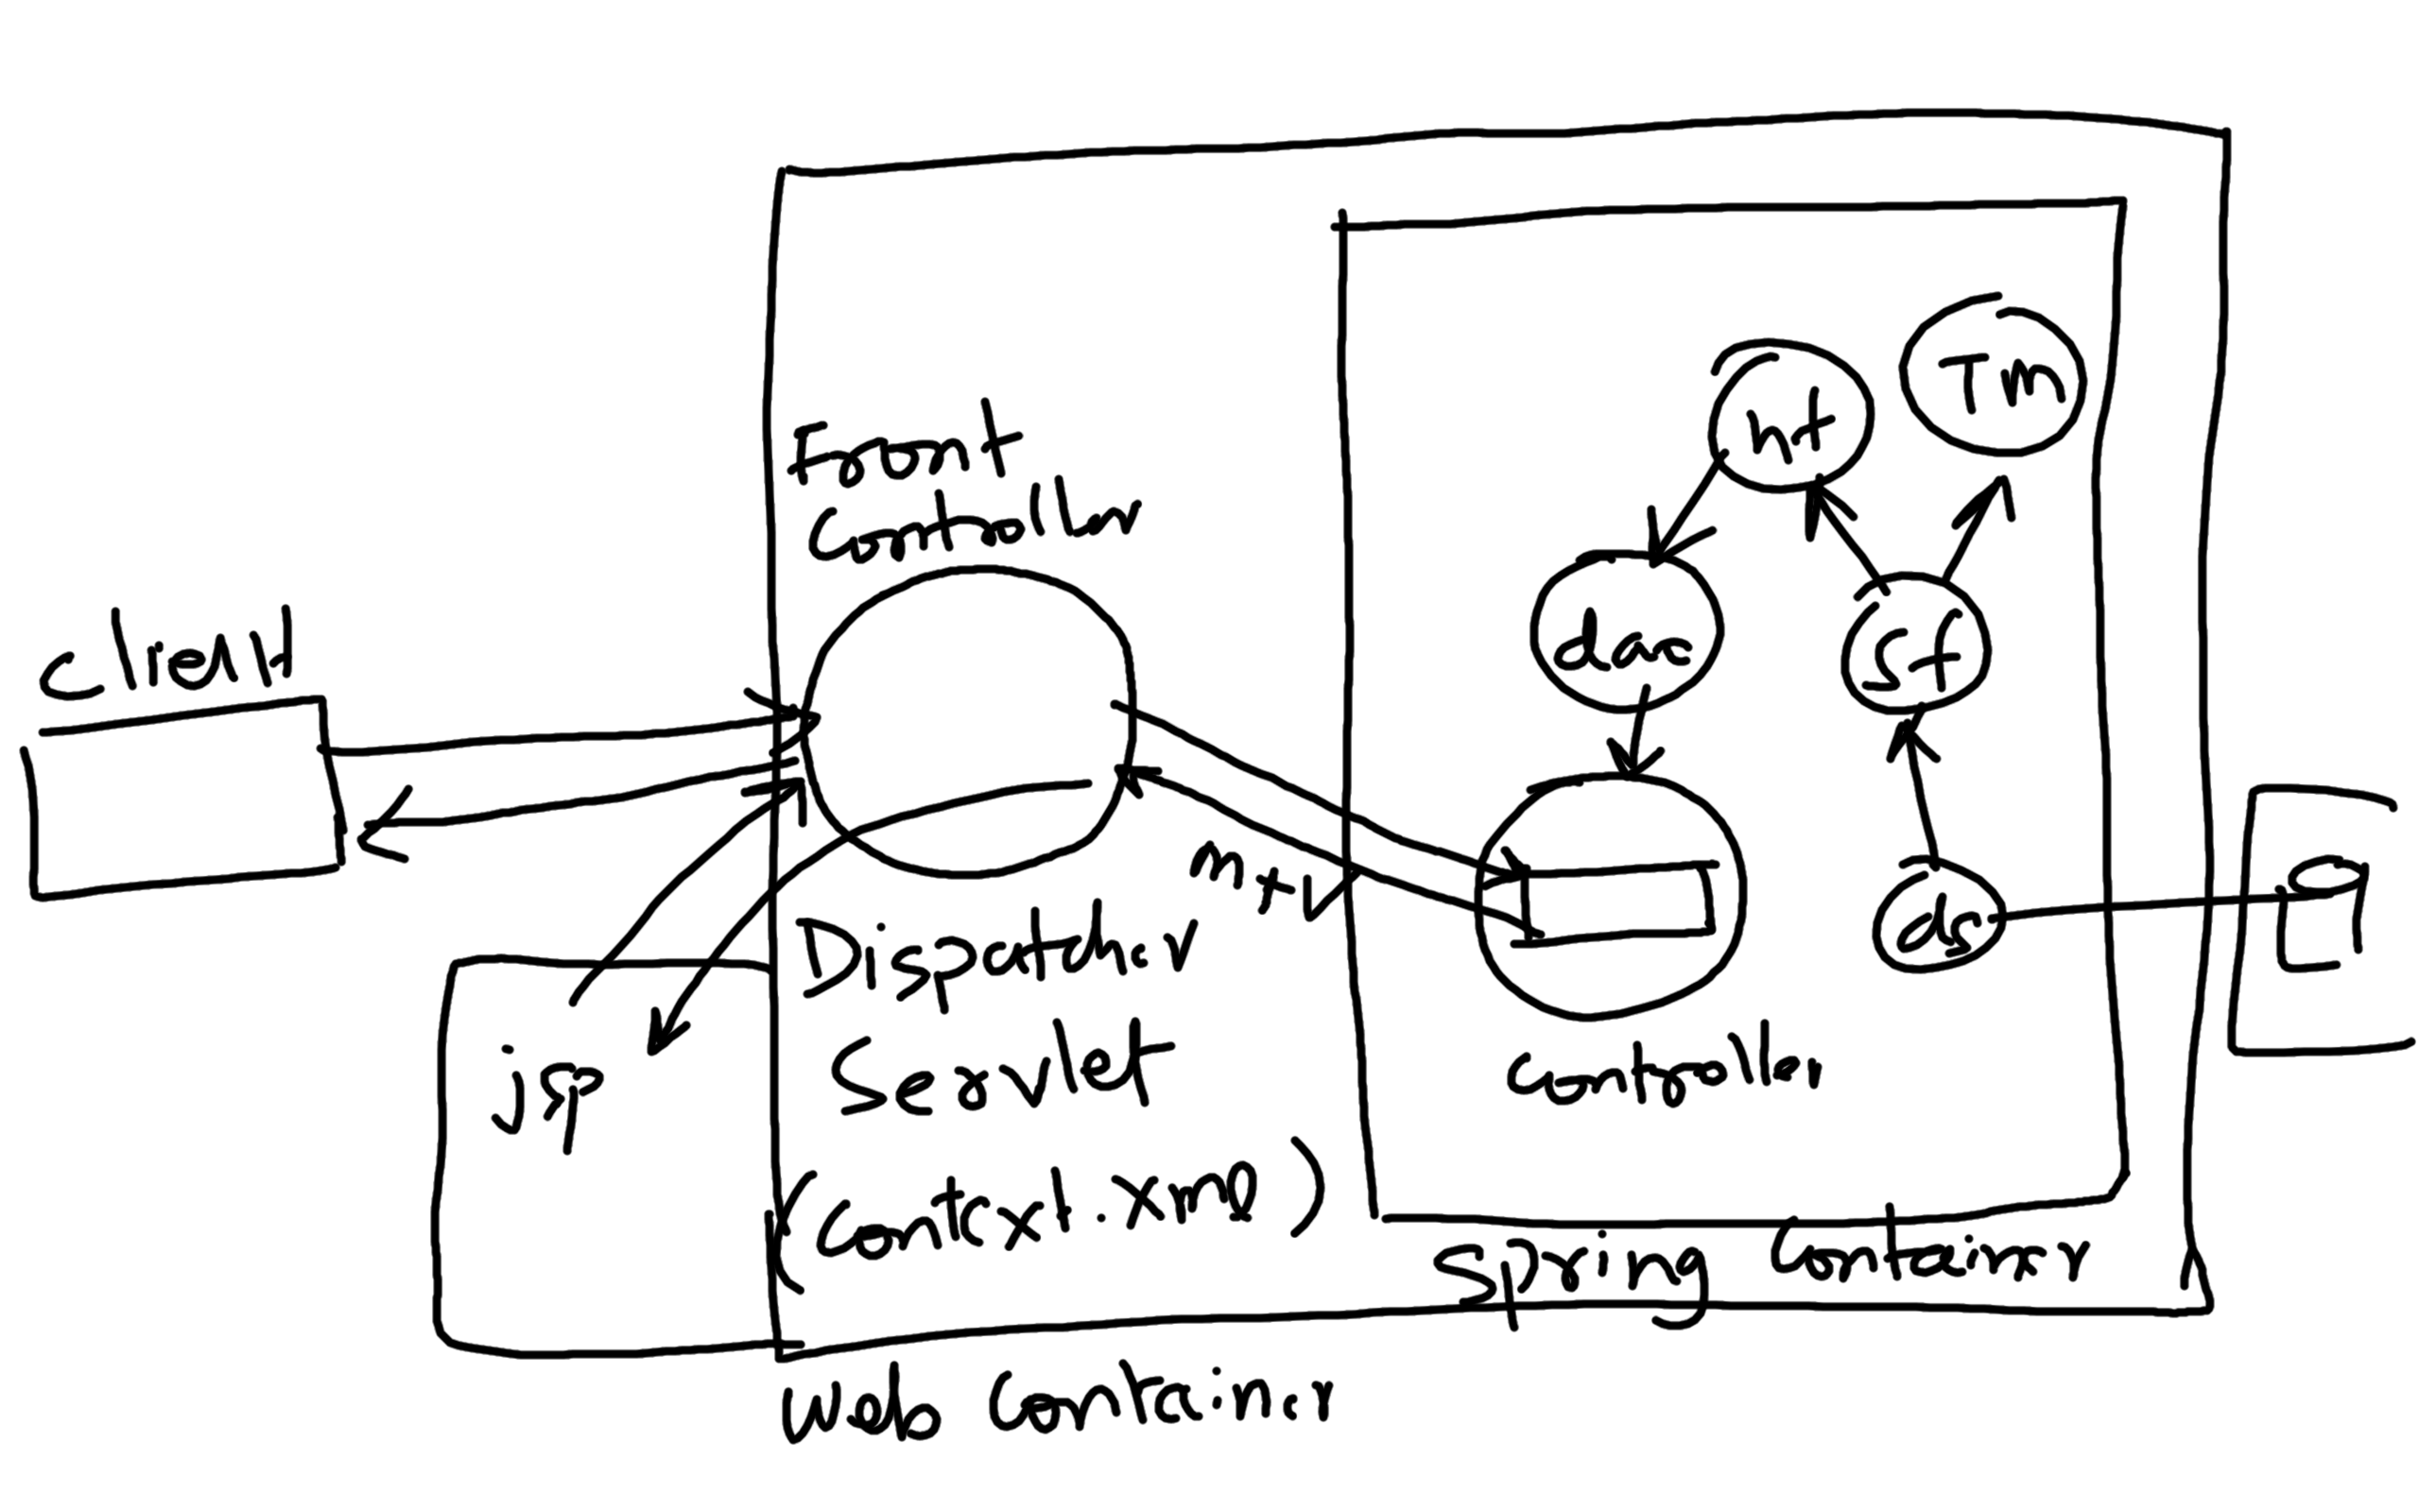 client
Front
Controller
Dispatcher
Servlet
(Context.xml)
jsp
m+V
ht
Tm
dao
sf
ds
Controller
Spring Container
Web Container